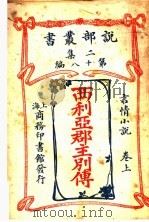 說部叢書
第二十八集編
言情小說 卷上
西利亞郡主別傳
上海商務印書館發行